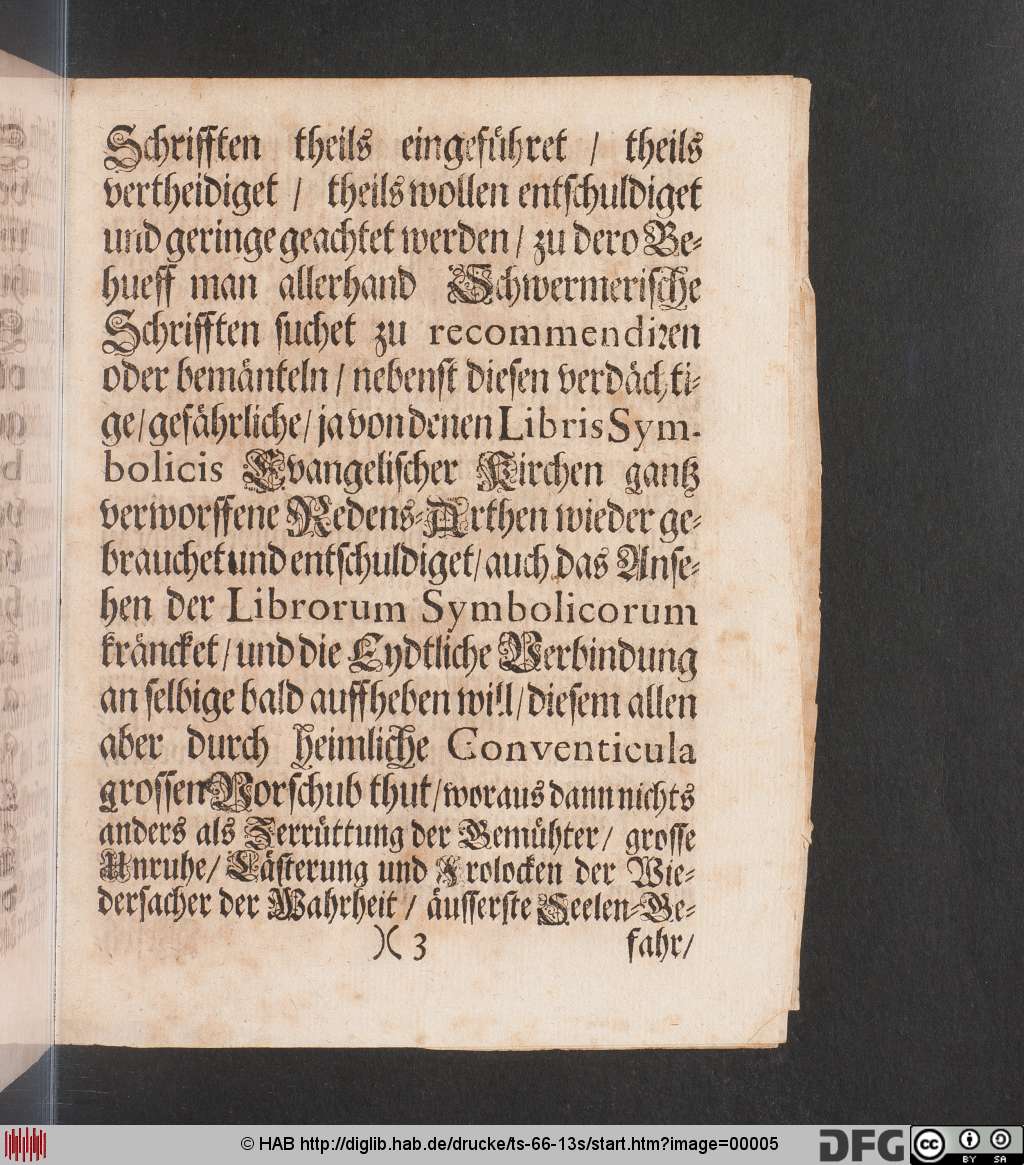 Schrifften theils eingeführet / theils
vertheidiget / theils wollen entschuldiget
und geringe geachtet werden / zu dero Be-
hueff man allerhand Schwermerische
Schrifften suchet zu recommendiren
oder bemänteln / nebenst diesen verdächti-
ge / gefährliche / ja von denen Libris Sym-
bolicis Evangelischer Kirchen gantz
verworffene Redens-Arthen wieder ge-
brauchet und entschuldiget / auch das Anse-
hen der Librorum Symbolicorum
kräncket / und die Eydtliche Verbindung
an selbige bald auffheben will / diesem allen
aber durch heimliche Conventicula
grossen Vorschub thut / woraus dann nichts
anders als Zerrüttung der Gemühter / grosse
Unruhe / Lästerung und Frolocken der Wie-
dersacher der Wahrheit / äusserste Seelen-Ge-
)( 3 fahr /
© HAB http://diglib.hab.de/drucke/ts-66-13s/start.htm?image=00005
DFG cc BY SA